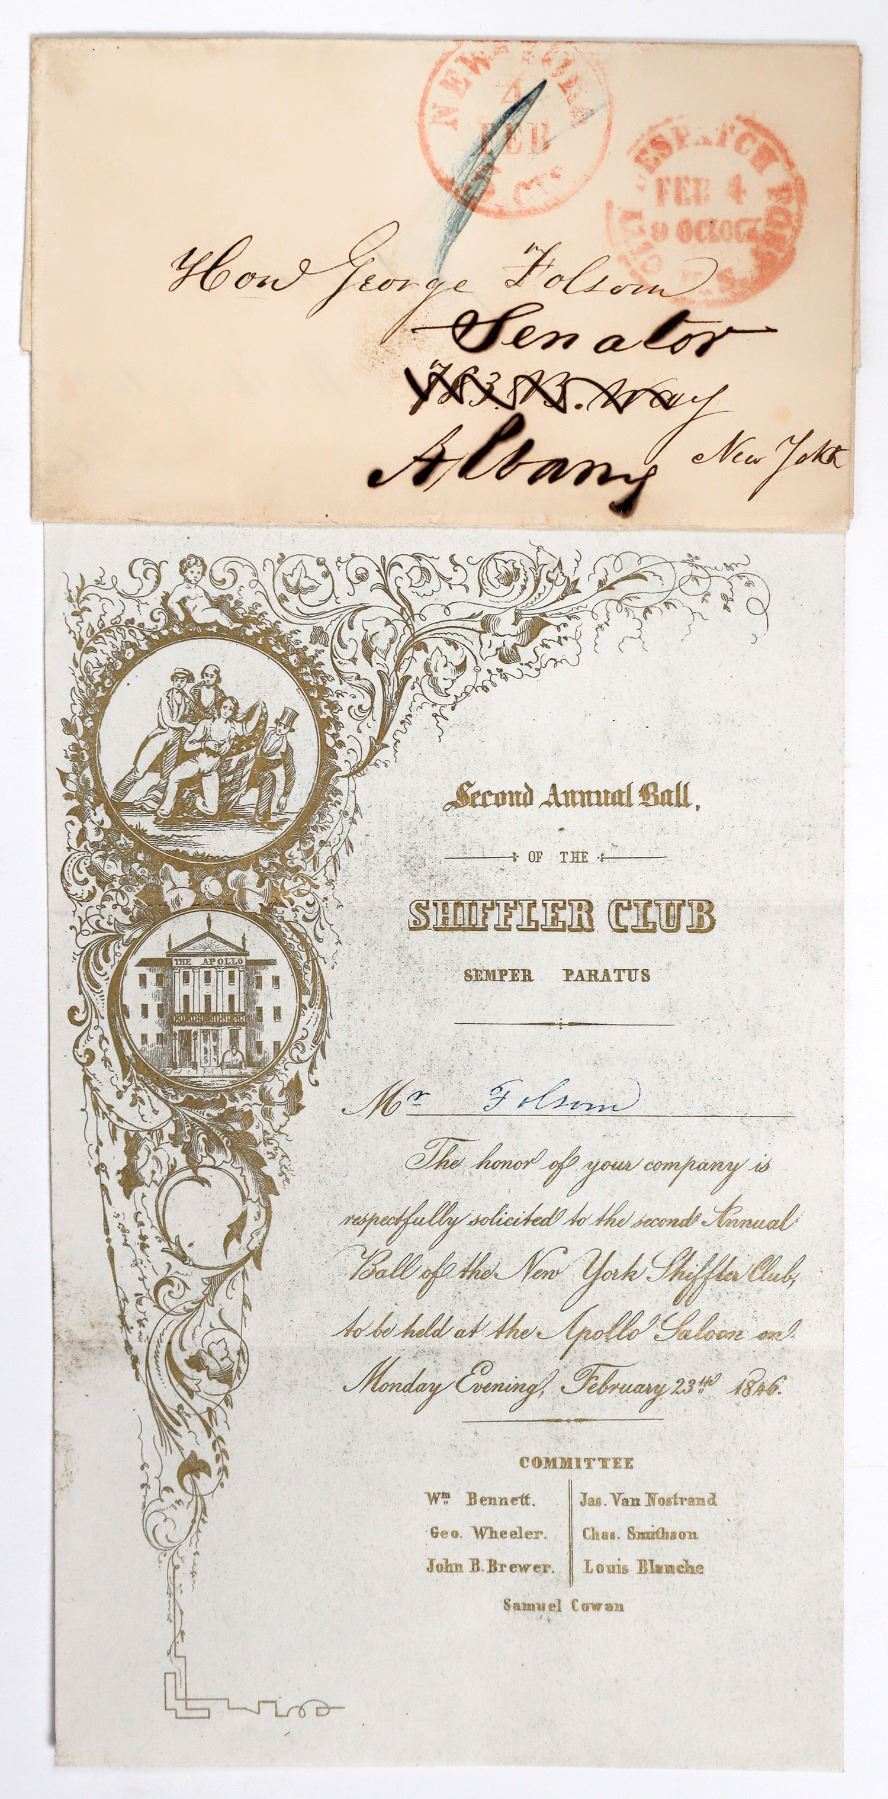 NEW-YORK
4
FEB
5 CTS
CITY DESPATCH POST
FEB 4
9 OCLOCK
U.S.
Hon George Folsom
Senator
783. B. Way
Albany New York
Second Annual Ball,
OF THE
SHIFFLER CLUB
SEMPER PARATUS
THE APOLLO
Mr Folsom
The honor of your company is
respectfully solicited to the second Annual
Ball of the New York Shiffler Club,
to be held at the Apollo Saloon on
Monday Evening, February 23rd 1846.
COMMITTEE
Wm Bennett. Jas. Van Nostrand
Geo. Wheeler. Chas. Smithson
John B. Brewer. Louis Blanche
Samuel Cowan